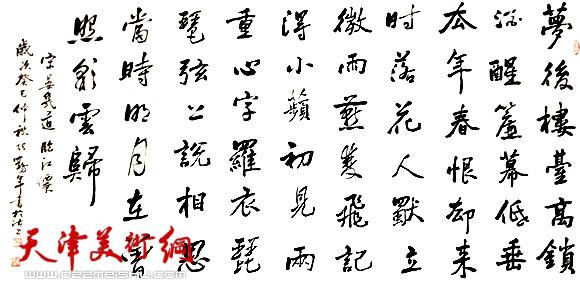 夢後樓臺高鎖
酒醒簾幕低垂
去年春恨却来
时落花人獨立
微雨燕雙飛記
得小蘋初見兩
重心字羅衣琵
琶弦上說相思
當時明月在曾
照彩雲歸
宋晏幾道臨江僊
歲次癸巳仲秋年書於
天津美術網
www.022meishu.com